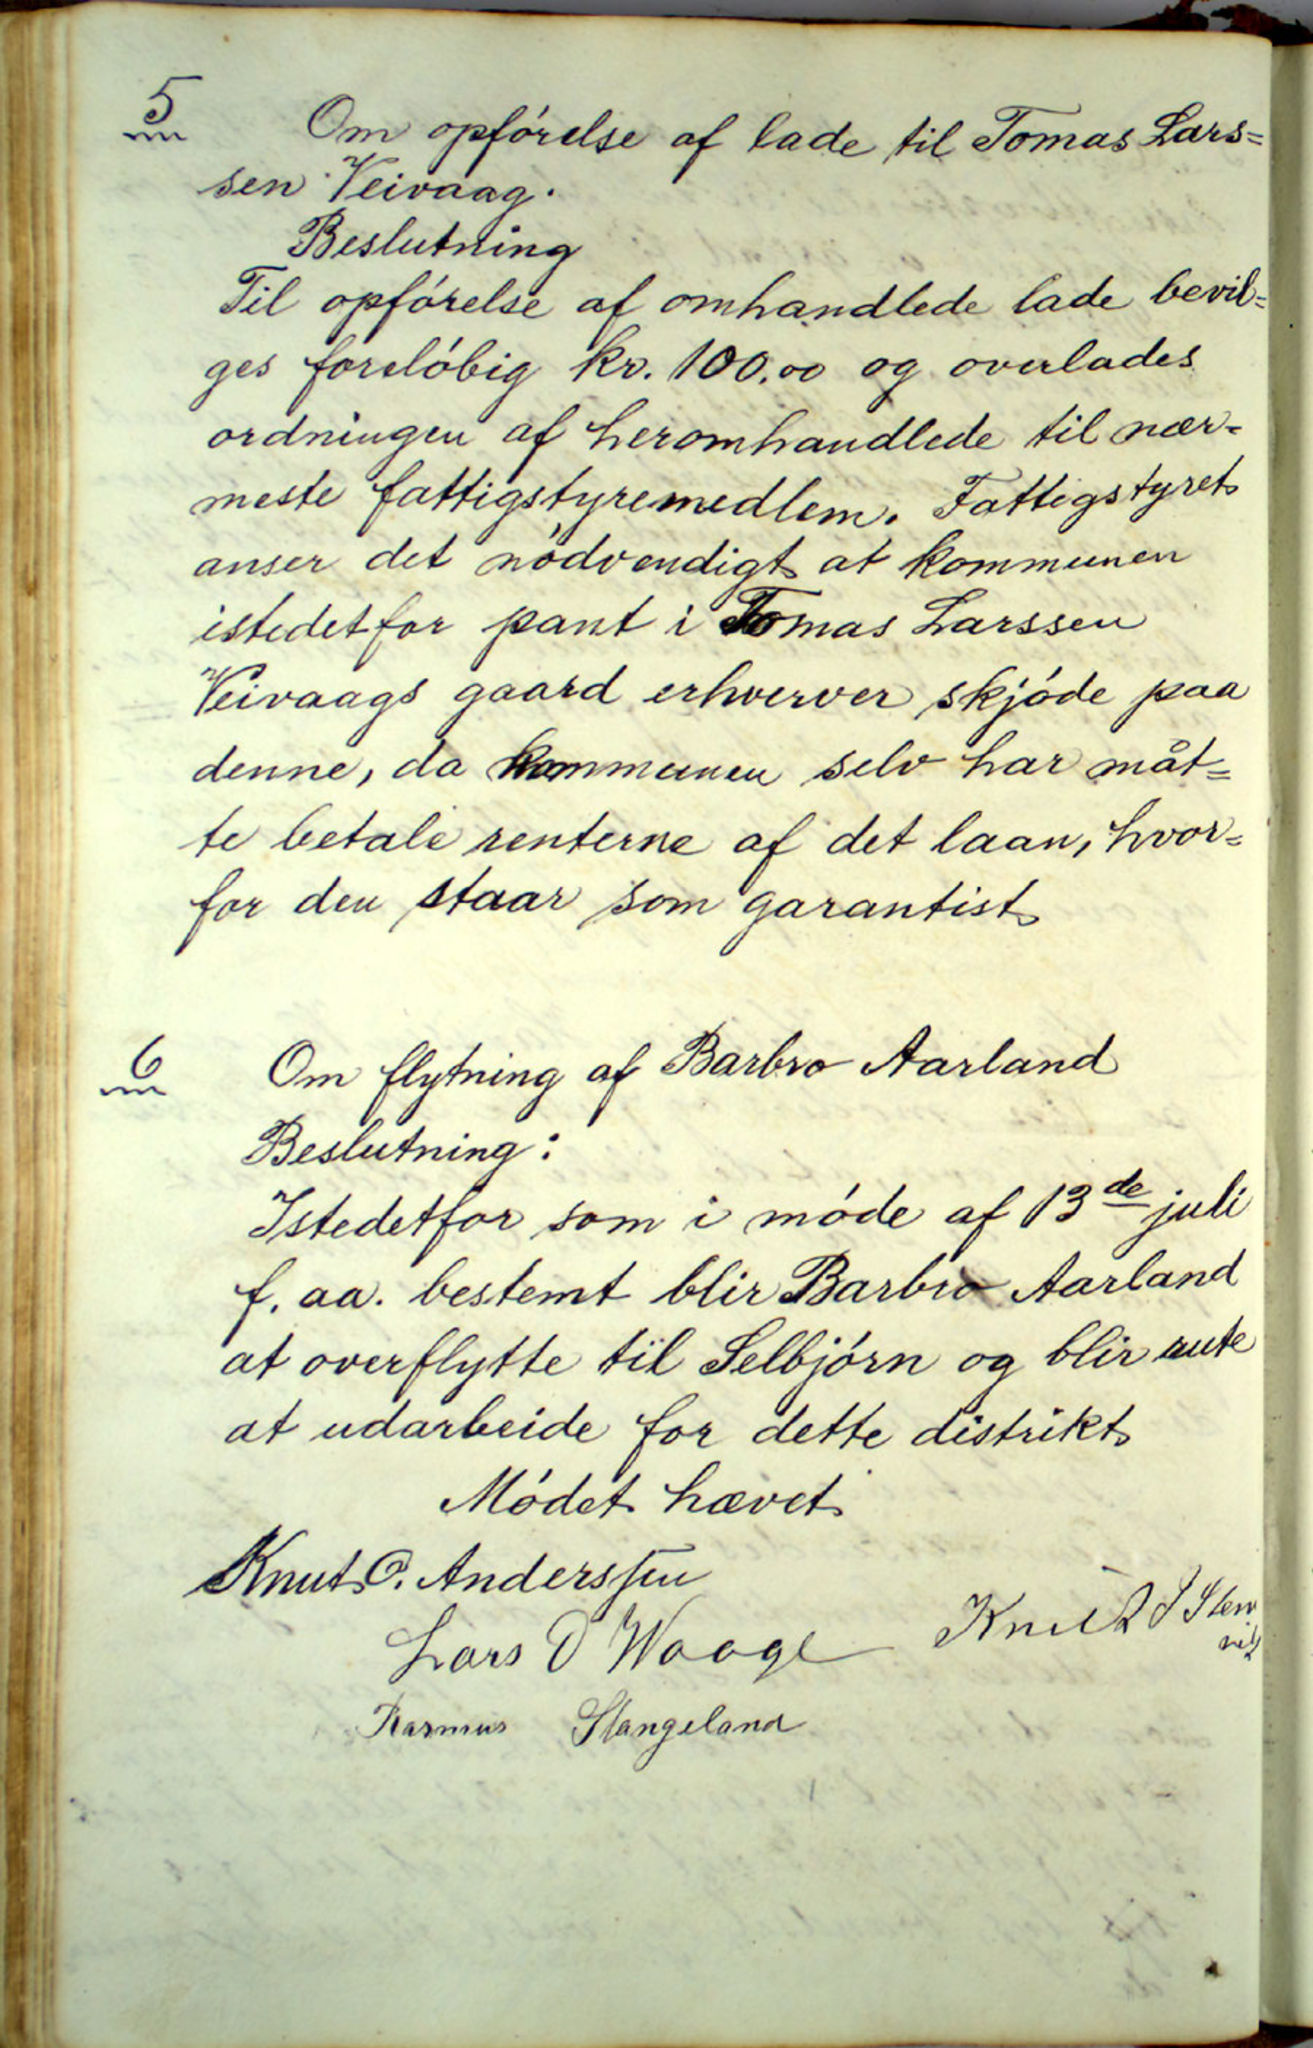 5
Om opförelse af lade til Tomas Lars=
sen Veivaag.
Beslutning
Til opförelse af omhandlede lade bevil=
ges forelöbig kr. 100.00 og overlades
ordningen af heromhandlede til nær=
meste fattigstyremedlem. Fattigstyret
anser det nödvendigt at kommunen
istedetfor pant i Tomas Larssen
Veivaags gaard erhverver skjöde paa
denne, da kommunen selv har måt=
te betale renterne af det laan, hvor=
for den staar som garantist
6
Om flytning af Barbro Aarland
Beslutning:
Istedetfor som i möde af 13de juli
f. aa. bestemt blir Barbro Aarland
at overflytte til Selbjörn og blir rute
at udarbeide for dette distrikt
Mödet hævet
Knut O. Anderssen
Lars O Waage Knut
Rasmus Stangeland